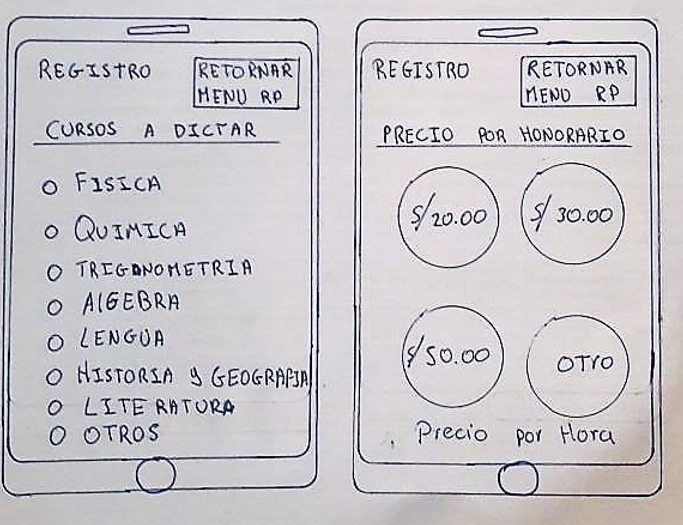 REGISTRO
RETORNAR
MENU RP
CURSOS A DICTAR
FISICA
QUIMICA
TRIGONOMETRIA
AlGEBRA
LENGUA
HISTORIA y GEOGRAFIA
LITERATURA
OTROS
REGISTRO
RETORNAR
MENU RP
PRECIO POR HONORARIO
S/20.00
S/ 30.00
S/50.00
OTrO
Precio por Hora